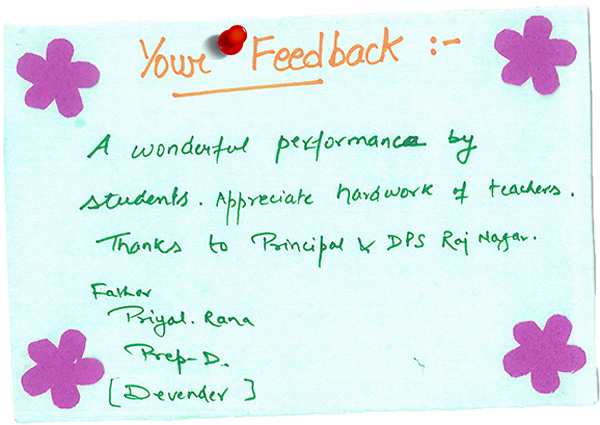 Your Feedback :-
A wonderful performance by
students. Appreciate hardwork of teachers.
Thanks to Principal & DPS Raj Nagar.
Father
Priyal. Rana
Prep-D.
[Devender]